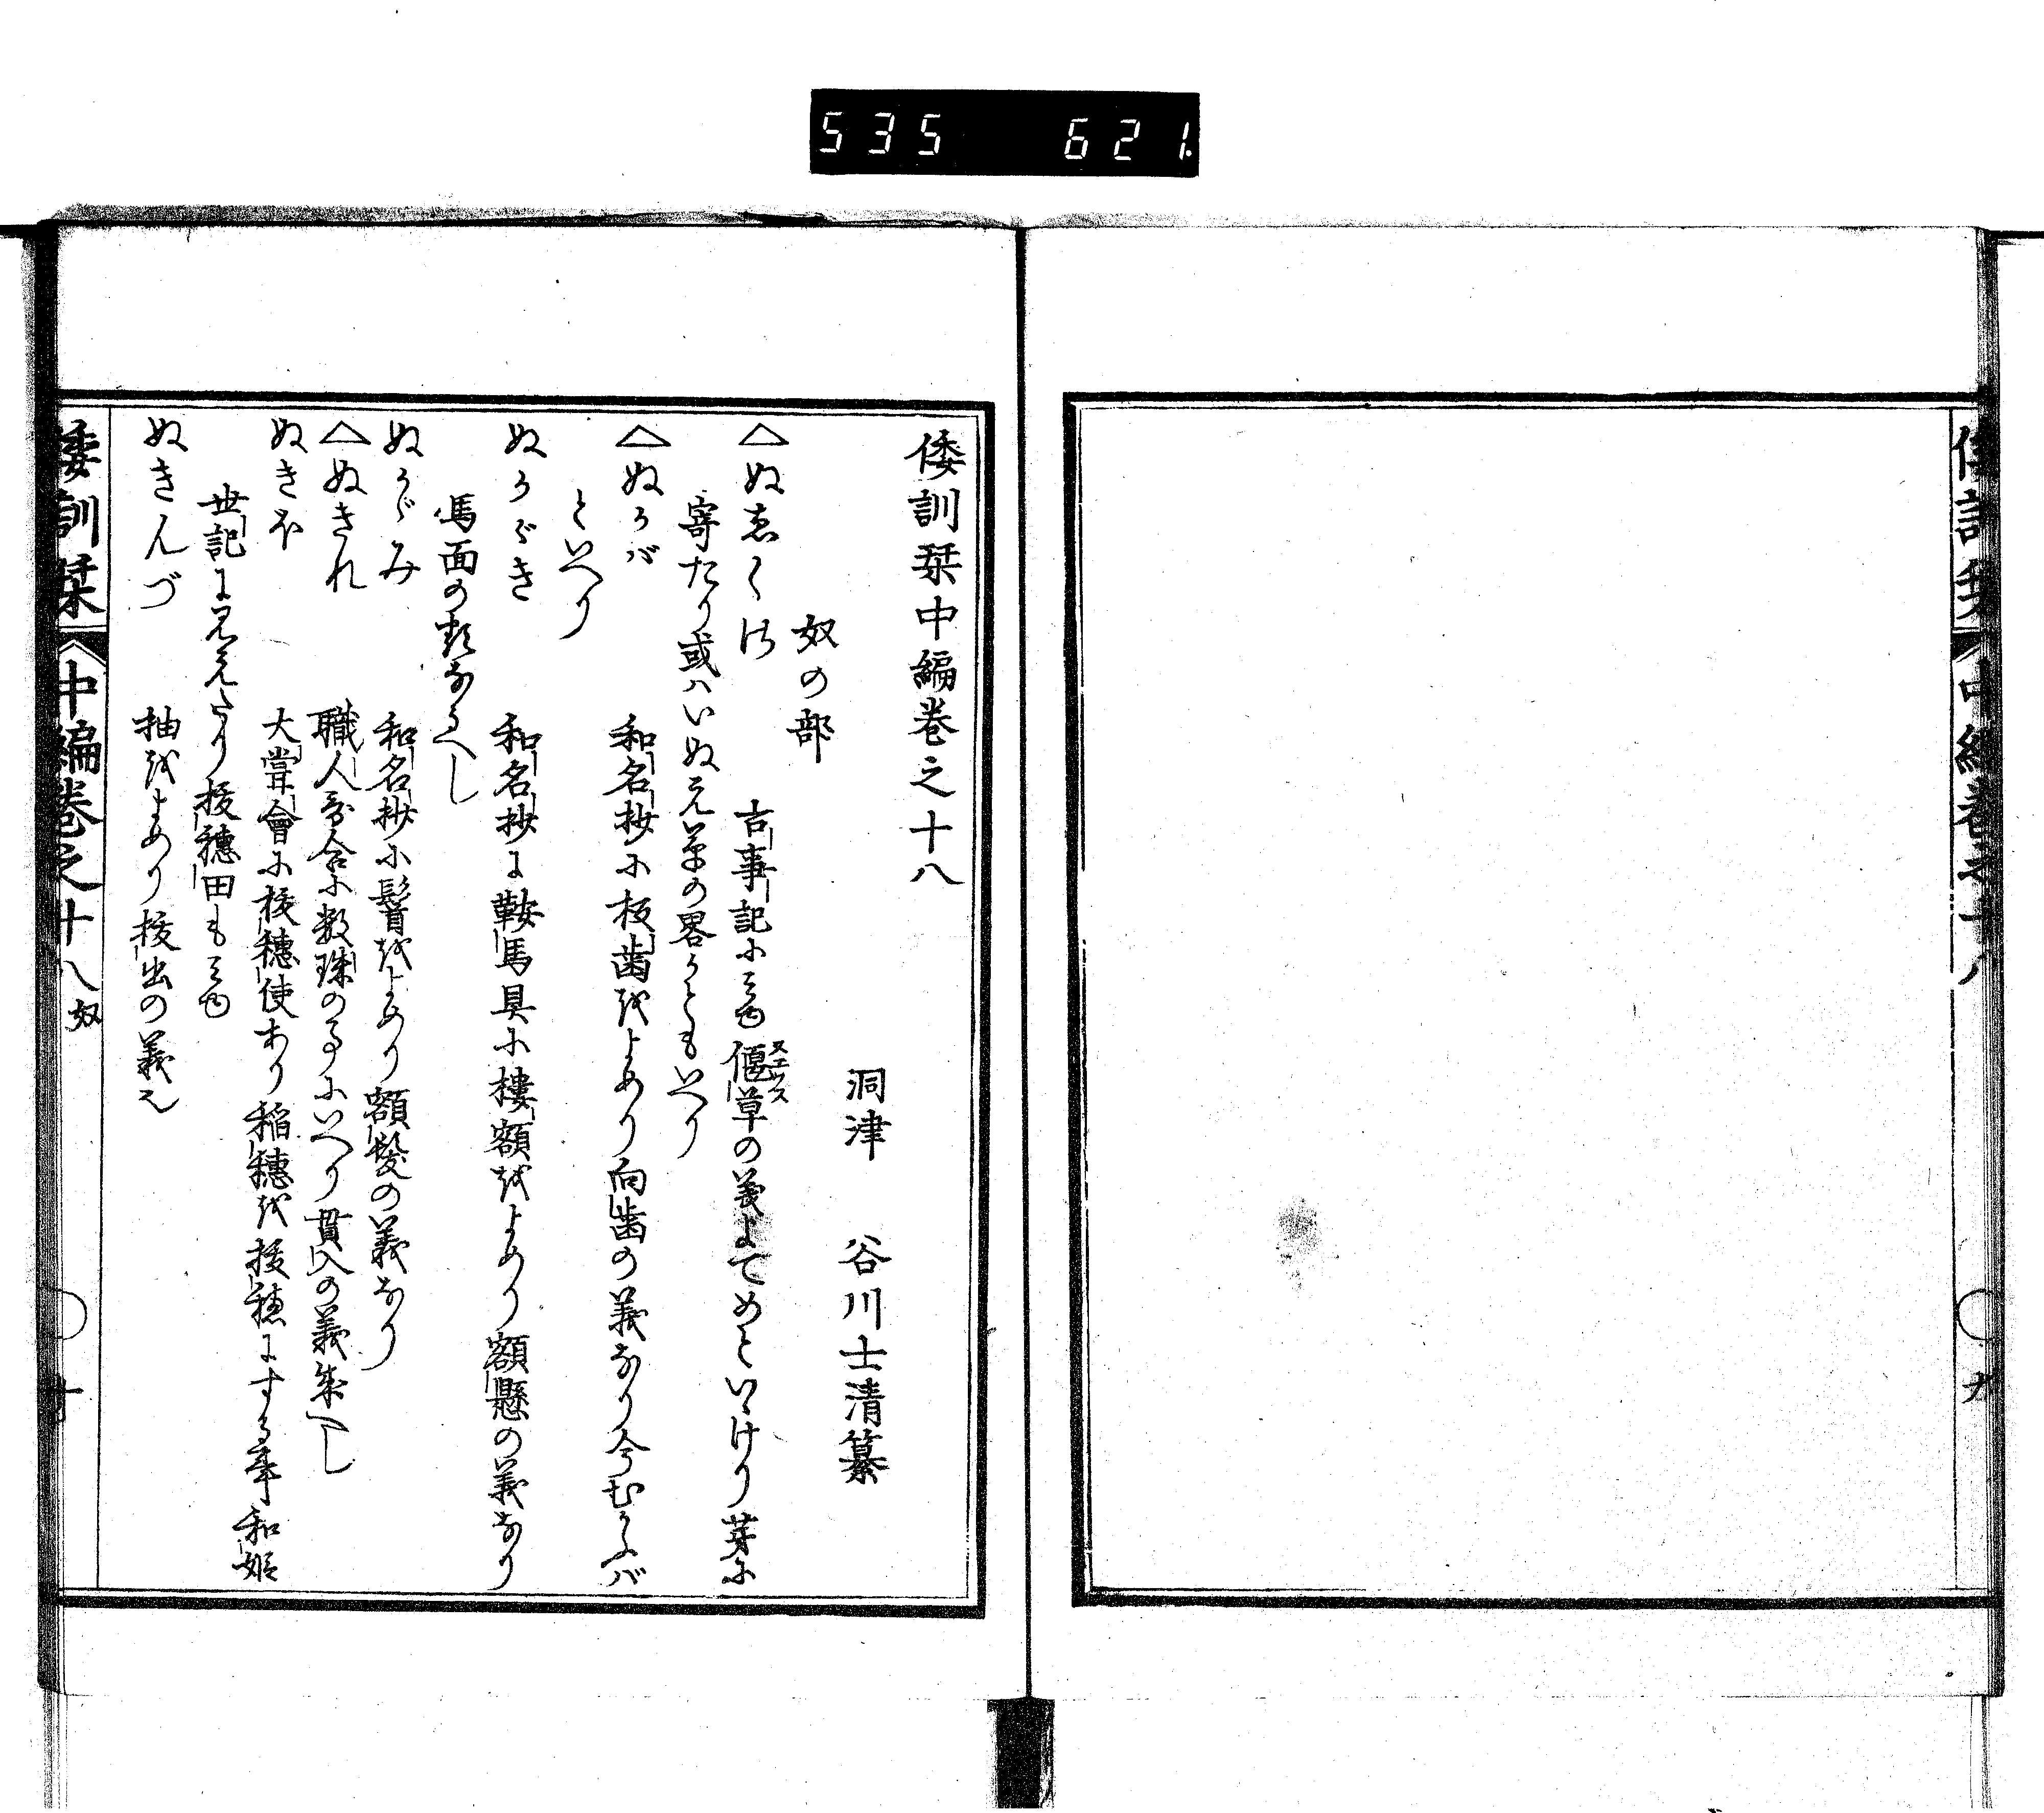 535 621.
倭訓栞中編巻之十八
洞津 谷川士清纂
奴の部
△ぬゑくさ 古事記にみゆ偃草の義よてめといひけり芽に
ヌエクサ
寄たり或ハいぬえ草の畧かともいへり
△ぬかば 和名抄に板歯をよめり向歯の義なり今むかふば
といへり
ぬかがき 和名抄に鞍馬具に樓額をよめり額懸の義なり
馬面の類なるべし
ぬかがみ 和名抄に鬘をよめり額髪の義なり
△ぬきれ 職人哥合に数珠の事にいへり貫入の義成へし
ぬきほ 大嘗會に抜穂使あり稲穂を抜穂にする事和姫
世記に見えたり抜穂田もみゆ
ぬきんづ 抽をよめり抜出の義也
倭訓栞 中編巻之十八 奴 十
倭訓栞 中編巻之十八 九